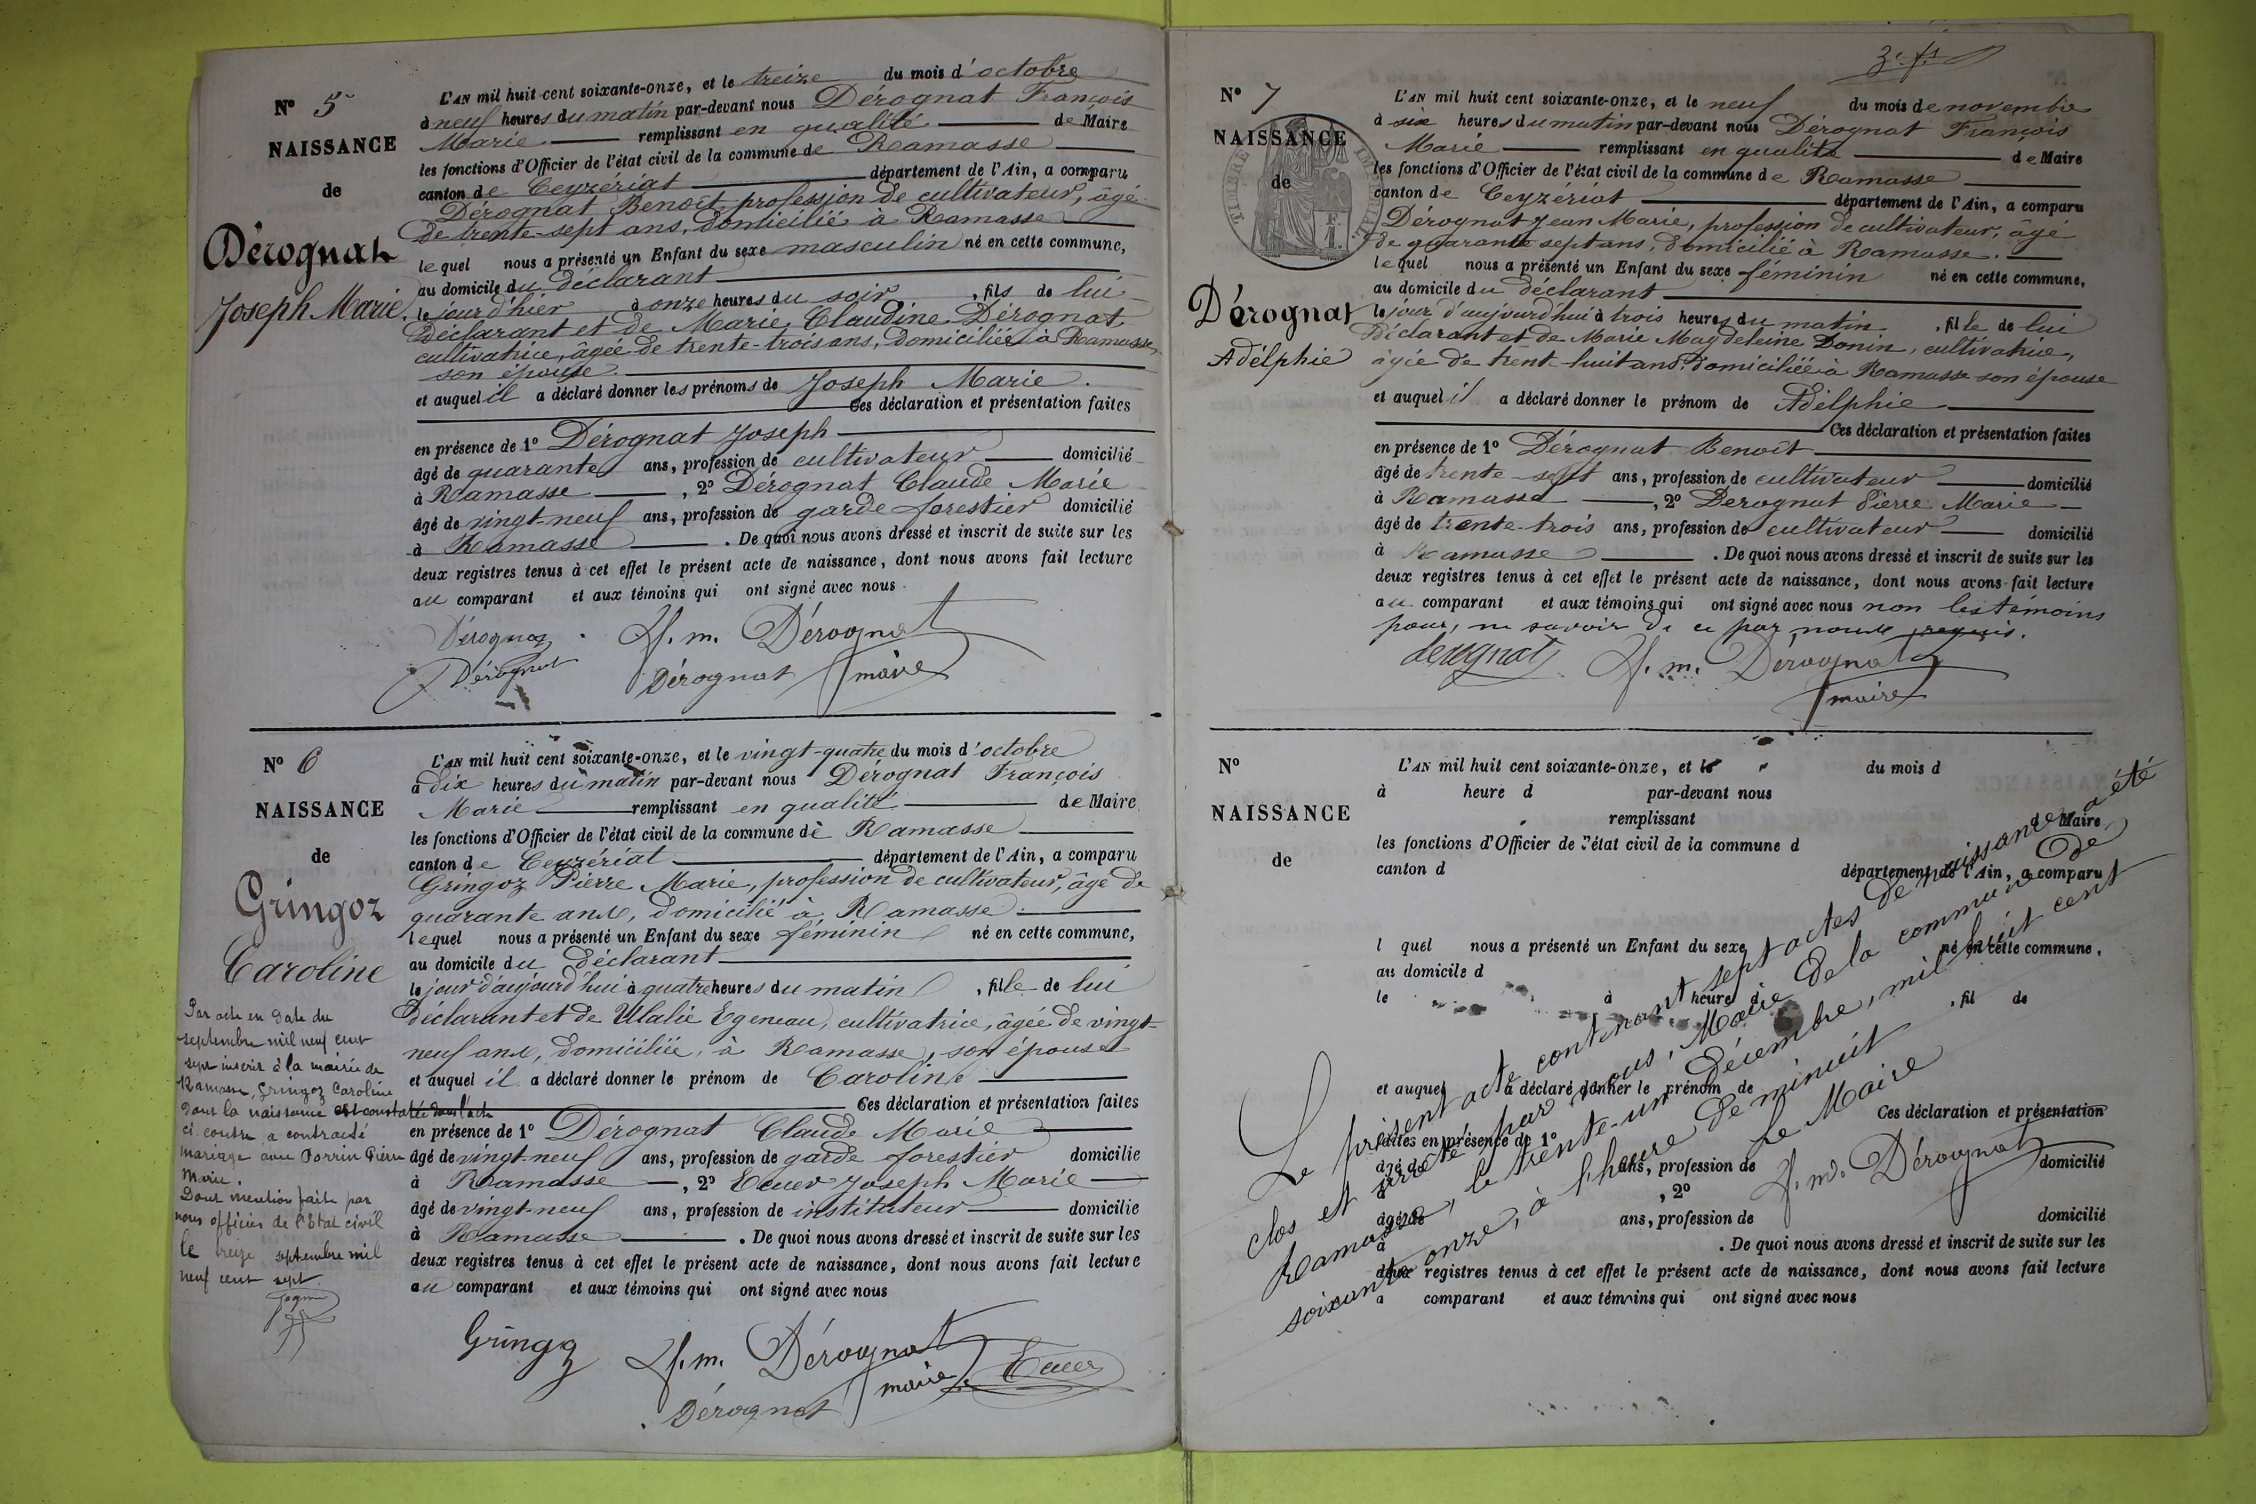 N° 5
NAISSANCE
de
Dérognat
Joseph Marie.
L'AN mil huit cent soixante-onze, et le treize du mois d'octobre
à neuf heures du matin par-devant nous Dérognat François
Marie remplissant en qualité de Maire
les fonctions d'Officier de l'état civil de la commune de Ramasse
canton de Ceyzériat département de l'Ain, a comparu
Dérognat Benoît profession de cultivateur, âgé
de trente-sept ans, domicilié à Ramasse
lequel nous a présenté un Enfant du sexe masculin né en cette commune,
au domicile du déclarant
le jour d'hier à onze heures du soir, fils de lui
déclarant et de Marie Claudine Dérognat
cultivatrice, âgée de trente-trois ans, domiciliée à Ramasse,
son épouse.
et auquel il a déclaré donner les prénoms de Joseph Marie.
Ces déclaration et présentation faites
en présence de 1° Dérognat Joseph
âgé de quarante ans, profession de cultivateur domicilié
à Ramasse, 2° Dérognat Claude Marie
âgé de vingt-neuf ans, profession de garde forestier domicilié
à Ramasse. De quoi nous avons dressé et inscrit de suite sur les
deux registres tenus à cet effet le présent acte de naissance, dont nous avons fait lecture
au comparant et aux témoins qui ont signé avec nous.
Dérognat. f. m. Dérognat
Dérognat Dérognat maire
N° 6
NAISSANCE
de
Gringoz
Caroline
Par acte en date du
septembre mil neuf cent
sept inscrit à la mairie de
Ramasse, Gringoz Caroline
dont la naissance est constatée dans l'acte
ci contre a contracté
mariage avec Porrin Pierre
Marie.
Dont mention faite par
nous officier de l'Etat civil
le treize septembre mil
neuf cent sept.
L'AN mil huit cent soixante-onze, et le vingt-quatre du mois d'octobre
à dix heures du matin par-devant nous Dérognat François
Marie remplissant en qualité de Maire
les fonctions d'Officier de l'état civil de la commune de Ramasse
canton de Ceyzériat département de l'Ain, a comparu
Gringoz Pierre Marie, profession de cultivateur, âgé de
quarante ans, domicilié à Ramasse.
lequel nous a présenté un Enfant du sexe féminin né en cette commune,
au domicile du déclarant
le jour d'aujourd'hui à quatre heures du matin, fille de lui
déclarant et de Ulalie Egeneau, cultivatrice, âgée de vingt-
neuf ans, domiciliée, à Ramasse, son épouse
et auquel il a déclaré donner le prénom de Caroline
Ces déclaration et présentation faites
en présence de 1° Dérognat Claude Marie
âgé de vingt-neuf ans, profession de garde forestier domicilié
à Ramasse, 2° Ecuer Joseph Marie
âgé de vingt-neuf ans, profession de instituteur domicilié
à Ramasse. De quoi nous avons dressé et inscrit de suite sur les
deux registres tenus à cet effet le présent acte de naissance, dont nous avons fait lecture
au comparant et aux témoins qui ont signé avec nous
Gringoz f. m. Dérognat
maire Ecuer
Dérognat
N° 7
NAISSANCE
de
Dérognat
Adélphie
L'AN mil huit cent soixante-onze, et le neuf du mois de novembre
à six heures du matin par-devant nous Dérognat François
Marie remplissant en qualité de Maire
les fonctions d'Officier de l'état civil de la commune de Ramasse
canton de Ceyzériat département de l'Ain, a comparu
Dérognat Jean Marie, profession de cultivateur, âgé
de quarante sept ans, domicilié à Ramasse.
lequel nous a présenté un Enfant du sexe féminin né en cette commune,
au domicile du déclarant
le jour d'aujourd'hui à trois heures du matin, fille de lui
déclarant et de Marie Magdeleine Donin, cultivatrice,
âgée de trent-huit ans, domiciliée à Ramasse son épouse
et auquel il a déclaré donner le prénom de Adélphie
Ces déclaration et présentation faites
en présence de 1° Dérognat Benoît
âgé de trente-sept ans, profession de cultivateur domicilié
à Ramasse, 2° Dérognat Pierre Marie
âgé de trente-trois ans, profession de cultivateur domicilié
à Ramasse. De quoi nous avons dressé et inscrit de suite sur les
deux registres tenus à cet effet le présent acte de naissance, dont nous avons fait lecture
au comparant et aux témoins qui ont signé avec nous non les témoins
pour, ne savoir de ce par nous requis.
derognat f. m. Dérognat
maire
N°
NAISSANCE
de
L'AN mil huit cent soixante-onze, et le du mois d
à heure d par-devant nous
remplissant d Maire
les fonctions d'Officier de l'état civil de la commune d
canton d département de l'Ain, a comparu
l quel nous a présenté un Enfant du sexe né en cette commune,
au domicile d
le à heure d, fil de
et auquel a déclaré donner le prénom de
Ces déclaration et présentation
faites en présence de 1°
âgé de ans, profession de domicilié
à, 2°
âgé de ans, profession de domicilié
à. De quoi nous avons dressé et inscrit de suite sur les
deux registres tenus à cet effet le présent acte de naissance, dont nous avons fait lecture
a comparant et aux témoins qui ont signé avec nous
Le présent acte contenant sept actes de naissances a été
clos et arrêté par nous, Maire de la commune de
Ramasse, le trente-un décembre, mil huit cent
soixante onze, à l'heure de minuit
Le Maire
f. m. Dérognat